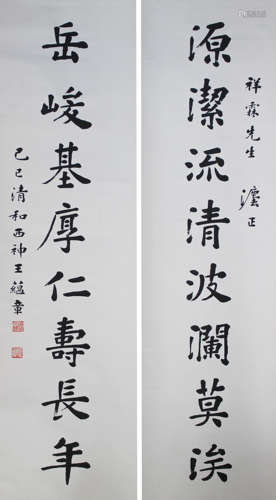 源潔流清波瀾莫涘
祥霖先生
灋正
岳峻基厚仁壽長年
己巳清和西神王蘊章